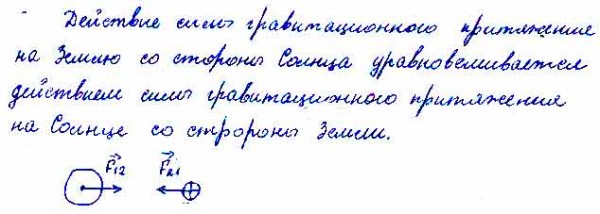 Действие силы гравитационного притяжения
на Землю со стороны Солнца уравновешивается
действием силы гравитационного притяжения
на Солнце со стророны Земли.
F₁₂ F₂₁